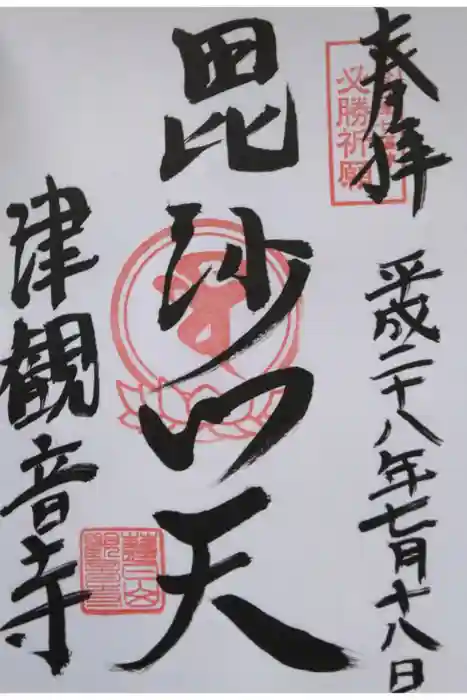 奉拝
必勝祈願
平成二十八年七月十八日
毘沙门天
津観音寺